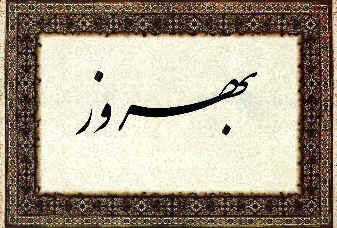 بهروز